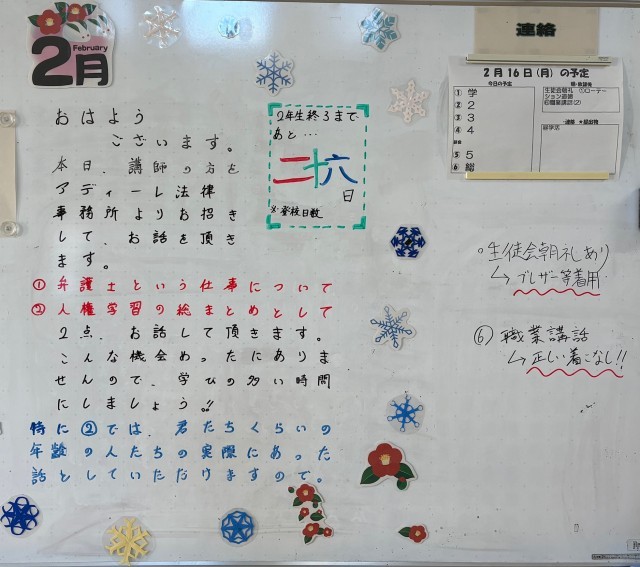 2月
February
おはよう
ございます。
本日、講師の方を
アディーレ法律
事務所よりお招き
して、お話を頂き
ます。
①弁護士という仕事について
②人権学習の総まとめとして
2点、お話して頂きます。
こんな機会めったにありま
せんので、学びの多い時間
にしましょう!!
特に②では、君たちくらいの
年齢の人たちの実際にあった
話としていただけますので。
2年生終了まで
あと…
二十六
日
※登校日数
連絡
2月16日(月)の予定
今日の予定
1 学
2 2
3 3
4 4
5 5
6 総
生徒会朝礼 ①ローテー
ション道徳
⑥職業講話(2)
・生徒会朝礼あり
↳ブレザー等着用
⑥職業講話
↳正しい着こなし!!